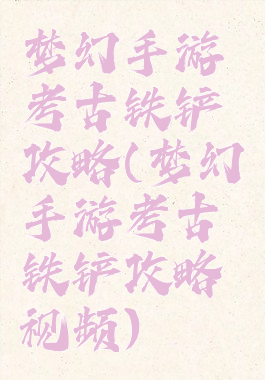 梦幻手游
考古铁铲
攻略(梦幻
手游考古
铁铲攻略
视频)